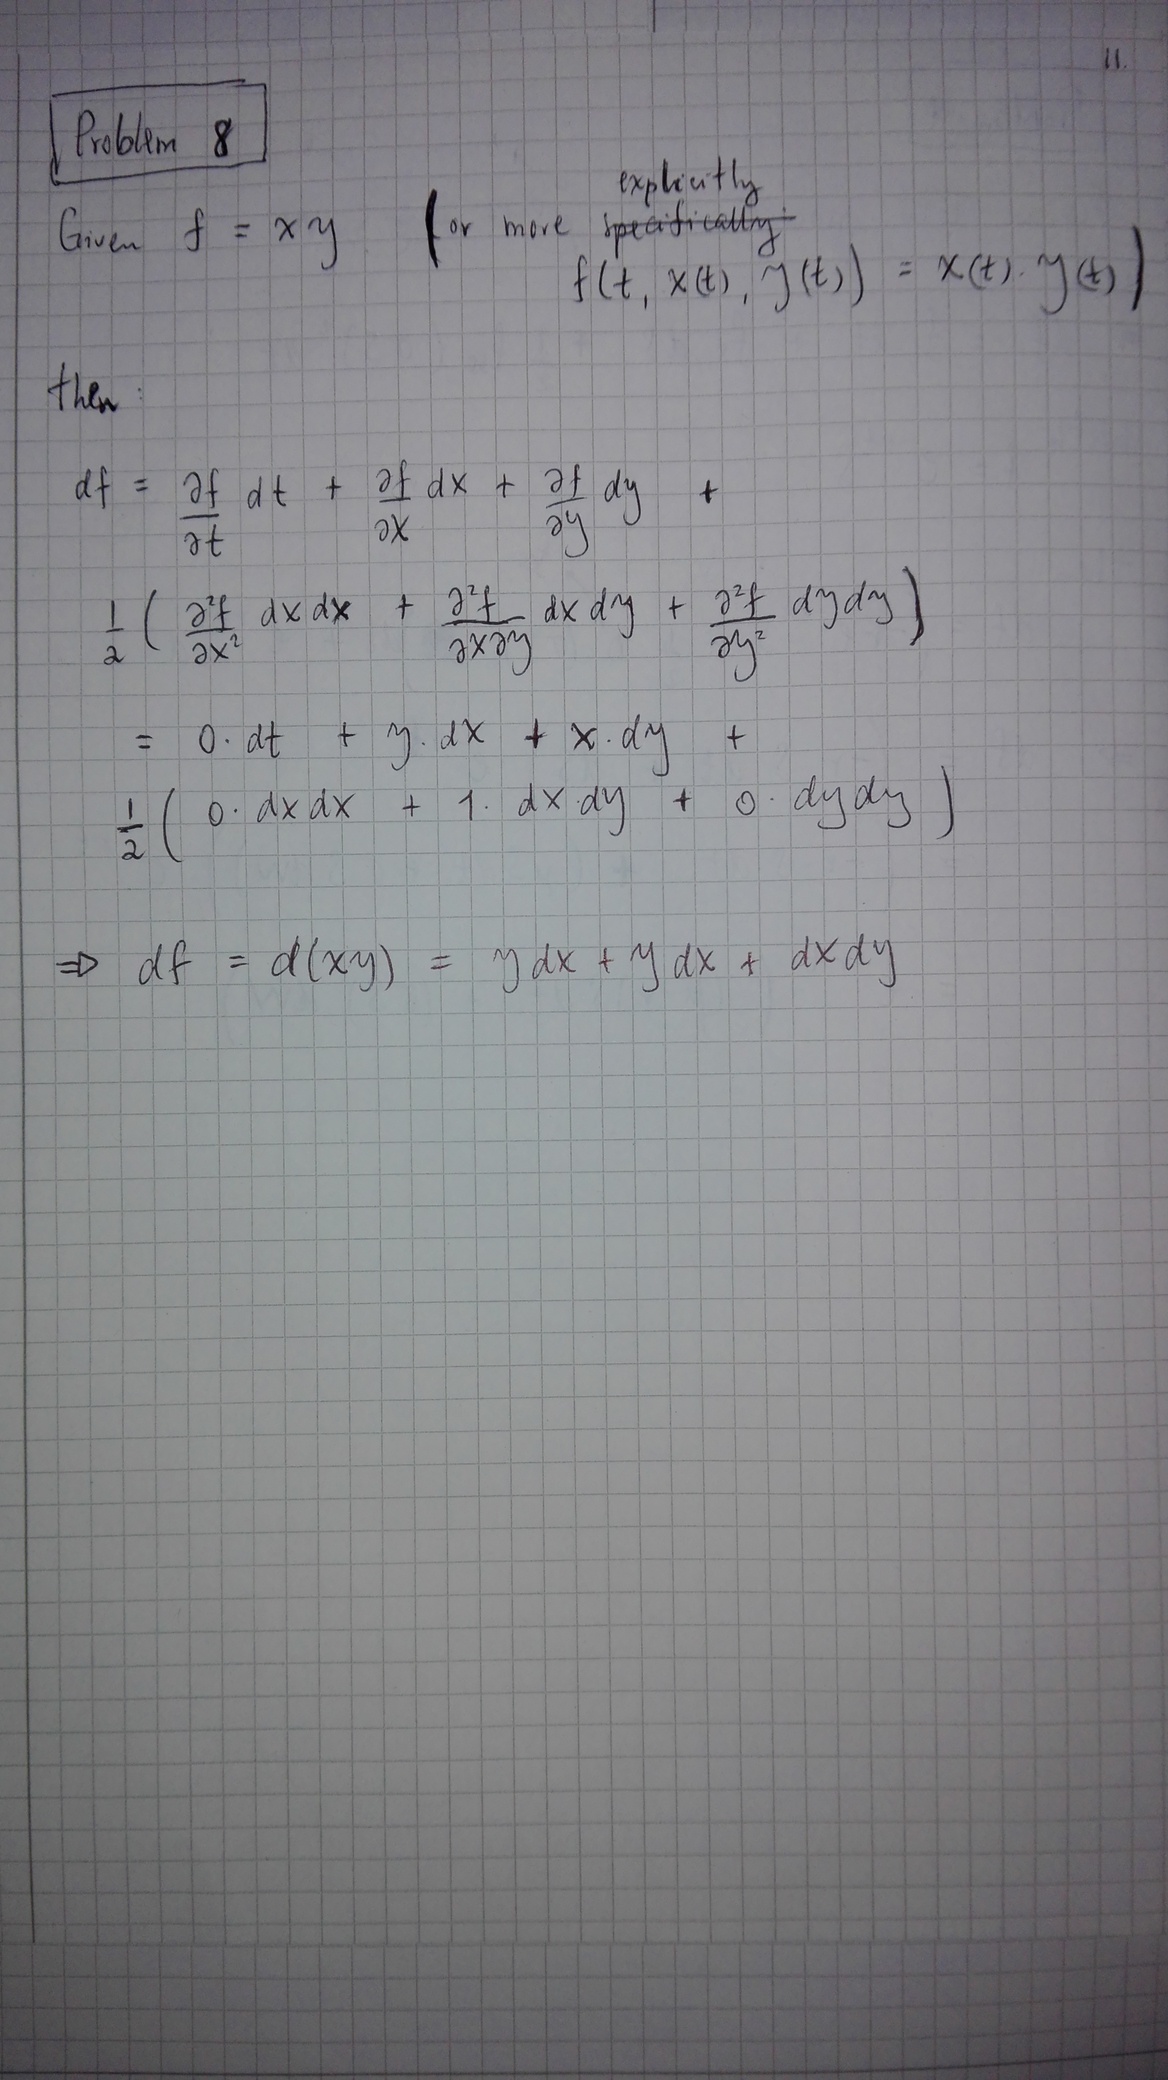 11.
Problem 8
Given f = xy (or more ~~specifically~~ explicitly
f(t, x(t), y(t)) = x(t) · y(t))
then:
df = ∂f/∂t dt + ∂f/∂x dx + ∂f/∂y dy +
1/2 ( ∂²f/∂x² dxdx + ∂²f/∂x∂y dxdy + ∂²f/∂y² dydy )
= 0· dt + y· dx + x· dy +
1/2 ( 0· dxdx + 1· dx·dy + 0· dydy )
⇒ df = d(xy) = ydx + ydx + dxdy